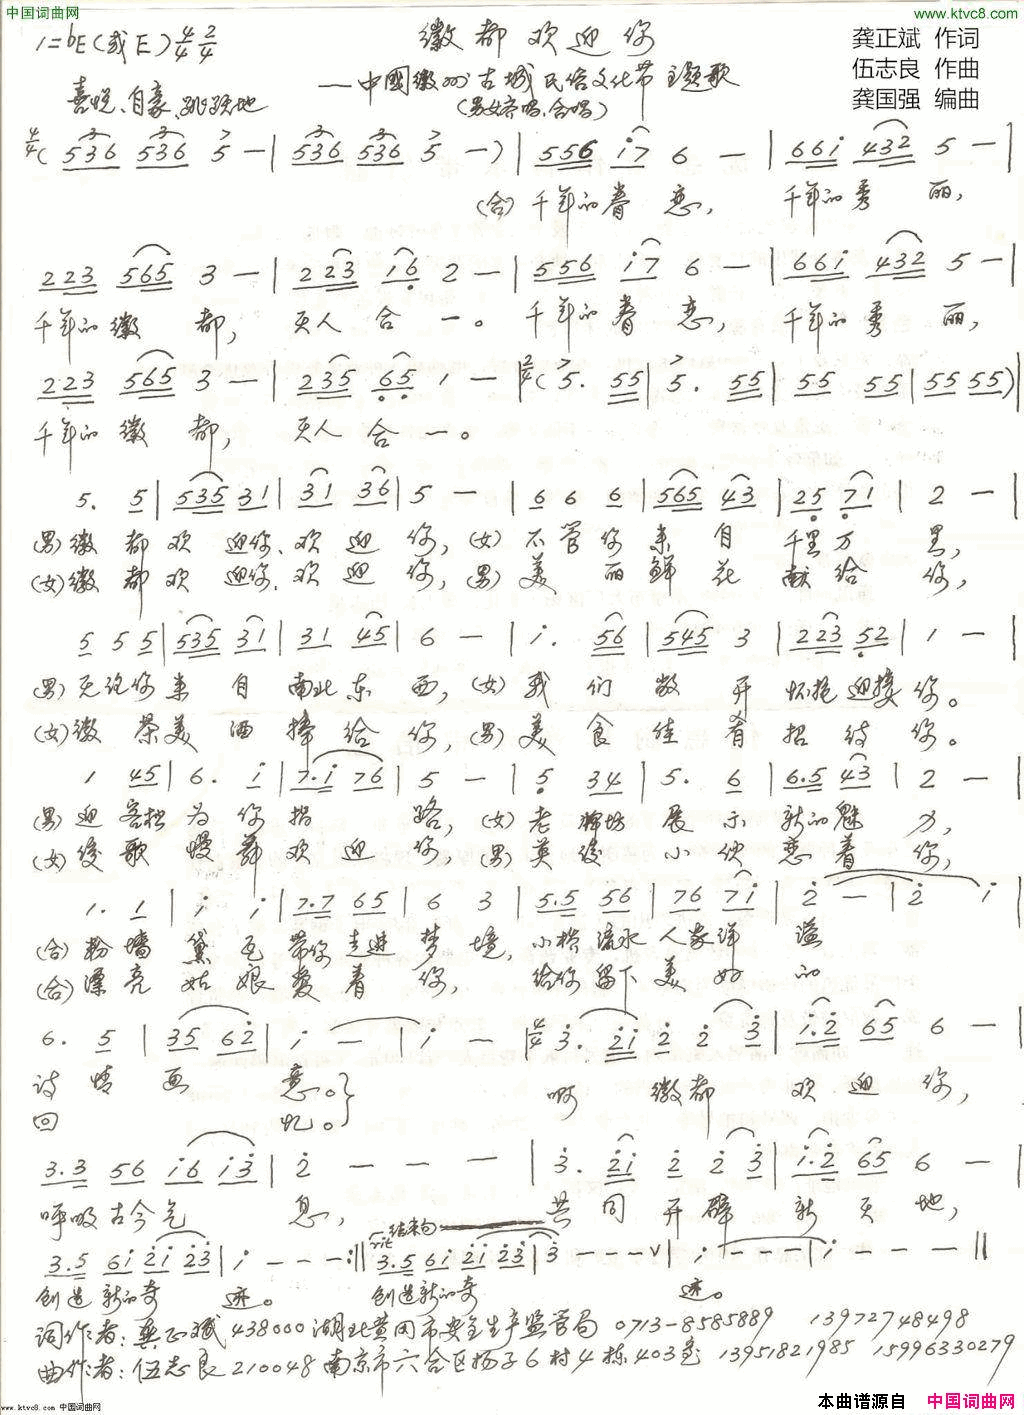 中国词曲网
www.ktvc8.com
1=bE(或E) 4/4 2/4
徽都欢迎你
龚正斌 作词
伍志良 作曲
龚国强 编曲
——中國徽州古城民俗文化节主题歌
喜悦、自豪、跳跃地
(男女齐唱、合唱)
4/4 ( 536 536 5 — | 536 536 5 — ) | 556 i7 6 — | 66i 432 5 — |
(合) 千年的眷恋, 千年的秀丽,
223 565 3 — | 223 16 2 — | 556 i7 6 — | 66i 432 5 — |
千年的徽都, 天人合一。 千年的眷恋, 千年的秀丽,
2·23 565 3 — | 235 65 1 — | 2/4 ( 5. 55 | 5. 55 | 55 55 | 55 55 ) |
千年的徽都, 天人合一。
5. 5 | 535 31 | 31 36 | 5 — | 6 6 6 | 565 43 | 25 71 | 2 — |
(男) 徽都欢迎你、欢迎你, (女) 不管你来自千里万里,
(女) 徽都欢迎你、欢迎你, (男) 美丽鲜花献给你,
5 5 5 | 535 31 | 31 45 | 6 — | i. 56 | 545 3 | 223 52 | 1 — |
(男) 无论你来自南北东西, (女) 我们敞开怀抱迎接你。
(女) 徽茶美酒捧给你, (男) 美食佳肴招待你。
1 45 | 6. i | 7.i 76 | 5 — | 5 34 | 5. 6 | 6.5 43 | 2 — |
(男) 迎客松为你指路, (女) 老牌坊展示新的魅力,
(女) 优歌慢舞欢迎你, (男) 英俊小伙恋着你,
1. 1 | i i | 7.7 65 | 6 3 | 5.5 56 | 76 7i | 2 — | 2 i |
(合) 粉墙黛瓦带你走进梦境, 小桥流水人家洋溢
(合) 漂亮姑娘爱着你, 给你留下美好的
6. 5 | 35 62 | i — | i — | 4/4 3. 2i 2 2 3 | i.2 65 6 — |
诗情画意。 啊 徽都欢迎你,
回忆。
3.3 56 i6 i3 | 2 — — — | 3. 2i 2 2 3 | i.2 65 6 — |
呼吸古今气息, 共同开辟新天地,
rit 结束句
3.5 6i 2i 23 | i — — — :‖ 3.5 6i 2i 23 | 3 — — — v | i — — — | i — — — ‖
创造新的奇迹。 创造新的奇迹。
词作者: 龚正斌 438000 湖北黄冈市安全生产监管局 0713-8585889 13972748498
曲作者: 伍志良 210048 南京市六合区扬子6村4栋403室 13951821985 15996330279
www.ktvc8.com 中国词曲网
本曲谱源自 中国词曲网